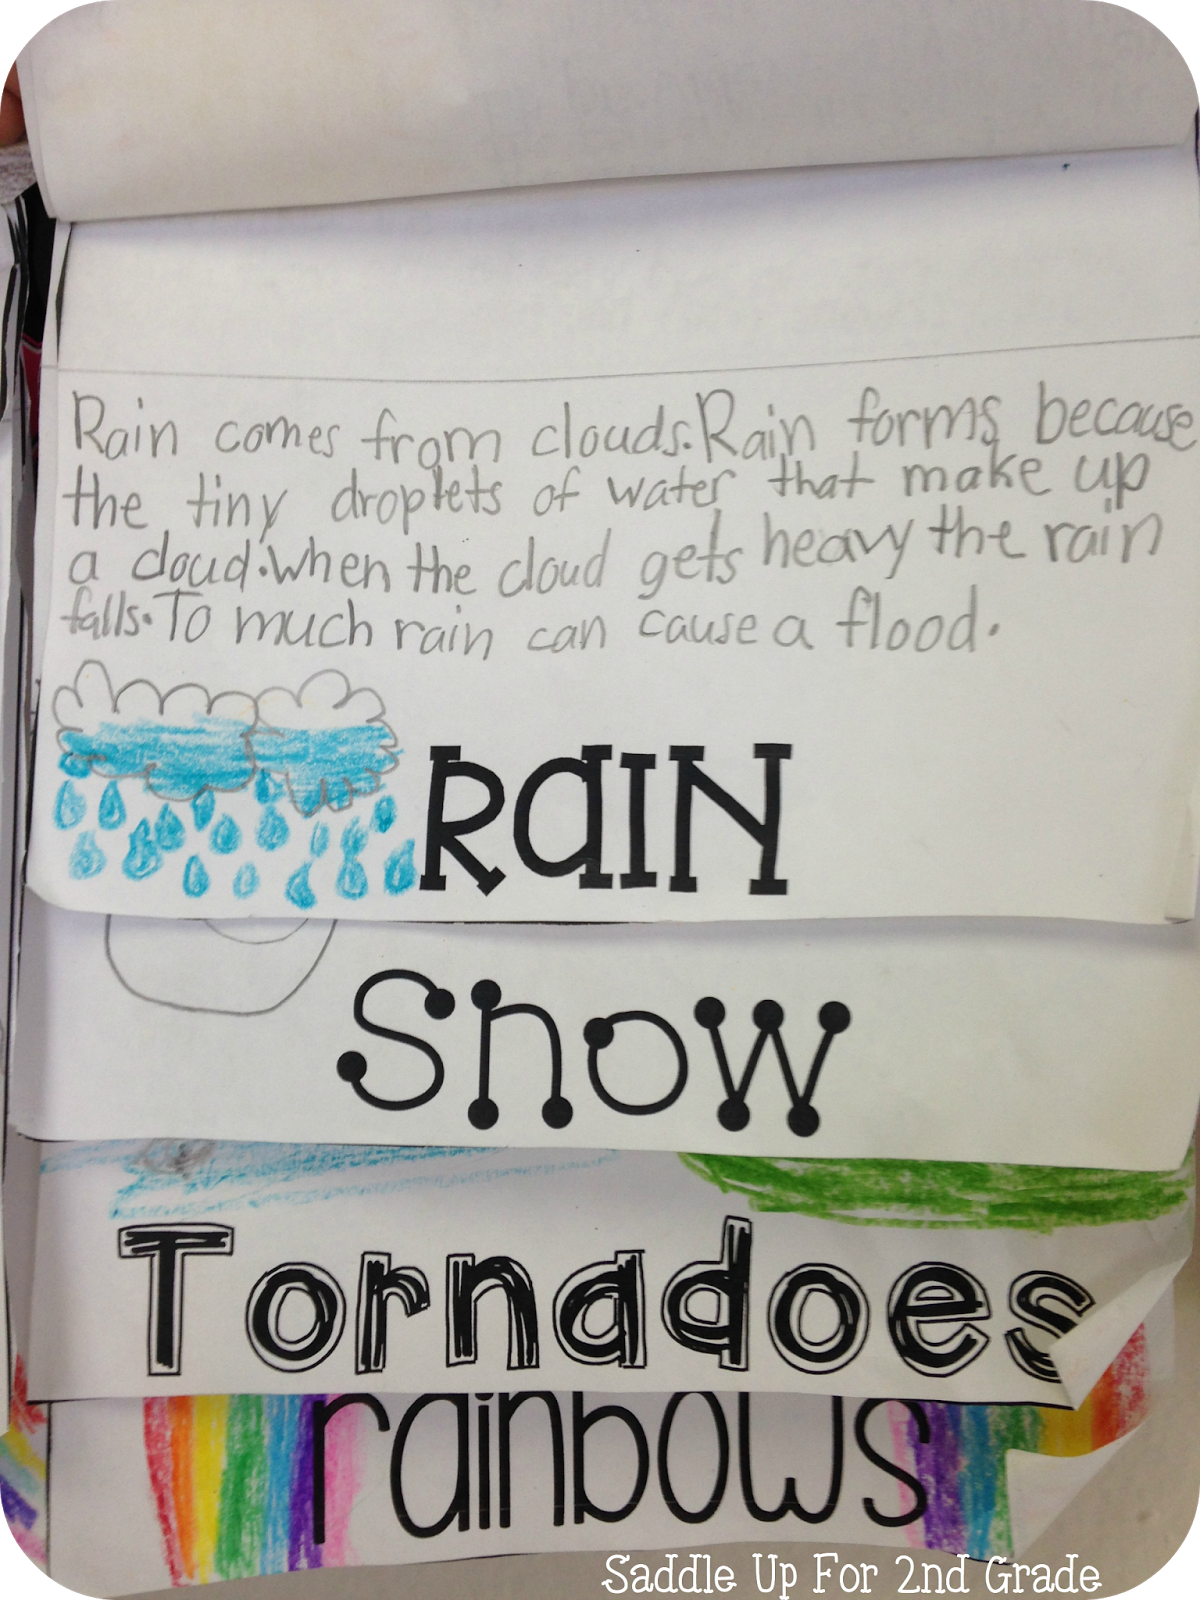 Rain comes from clouds.Rain forms because
the tiny droplets of water that make up
a cloud.When the cloud gets heavy the rain
falls.To much rain can cause a flood.
RAIN
Snow
Tornadoes
rainbows
Saddle Up For 2nd Grade